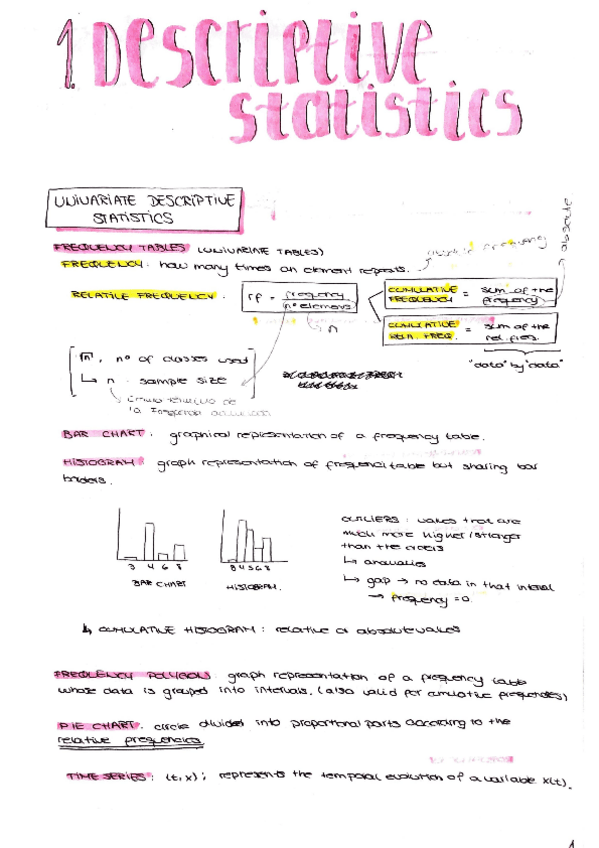 1 Descriptive
statistics
UNIVARIATE DESCRIPTIVE
STATISTICS
FREQUENCY TABLES (UNIVARIATE TABLES)
FREQUENCY: how many times an element repeats.
absolute frequency
absolute
RELATIVE FREQUENCY: rf = frequency / nº elements
n
CUMULATIVE FREQUENCY = sum of the frequency
CUMULATIVE REL. FREQ. = sum of the rel. freq.
"data" by "data"
√n, nº of classes used
↳ n: sample size
BAR CHART: graphical representation of a frequency table.
HISTOGRAM: graph representation of frequency table but sharing bar
borders.
3 4 6 8
BAR CHART
3 4 5 6 8
HISTOGRAM.
OUTLIERS: values that are
much more higher/stranger
than the others
↳ anomalies
↳ gap → no data in that interval
→ frequency = 0.
↳ CUMULATIVE HISTOGRAM: relative or absolute values
FREQUENCY POLYGON: graph representation of a frequency table
whose data is grouped into intervals. (also valid for cumulative frequencies)
PIE CHART: circle divided into proportional parts according to the
relative frequencies
TIME SERIES: (t,x); represents the temporal evolution of a variable x(t).
1